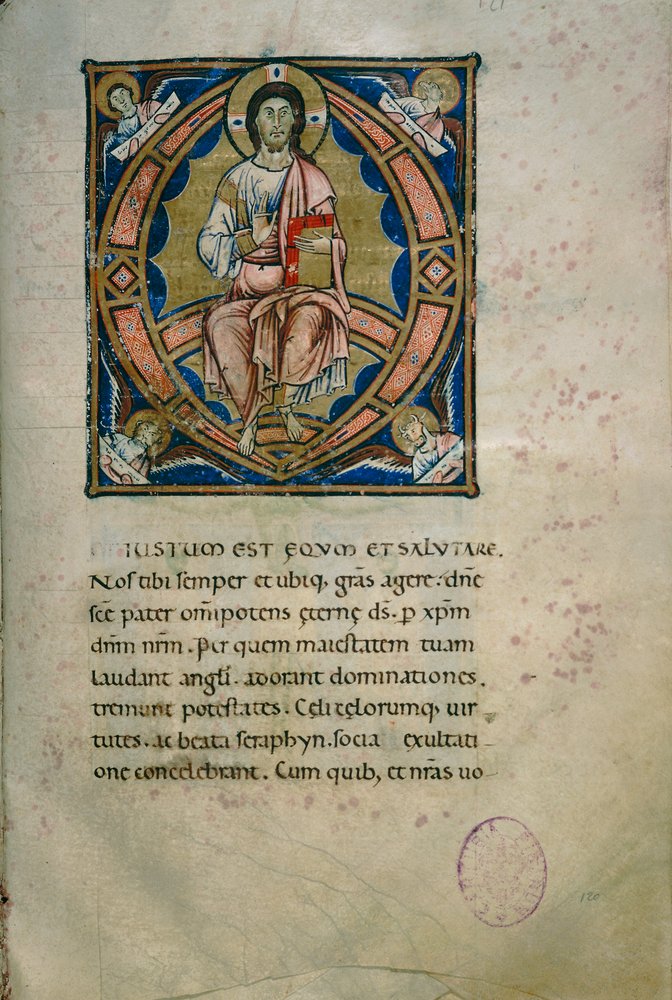 IUSTUM EST EQVM ET SALVTARE.
Nos tibi semper et ubiq, grãs agere. dñe
sc̃e pater om̃ipotens ęternę ds̃. p xp̃m
dñm nr̃m. Per quem maiestatem tuam
laudant angl̃i. adorant dominationes.
tremunt potestates. Cęli cęlorumq, uir
tutes. ac beata seraphyn. socia exultati
one concelebrant. Cum quib, et nr̃as uo
120